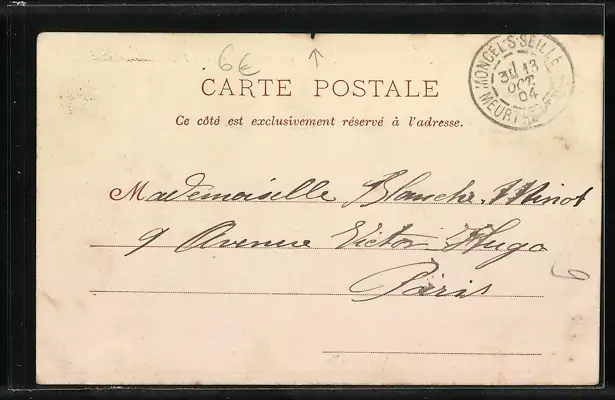 6€
CARTE POSTALE
Ce côté est exclusivement réservé à l'adresse.
MONCEL-S-SEILLE
13
OCT
04
MEURTHE
Mademoiselle Blanche Minot
9 Avenue Victor Hugo
Paris
9